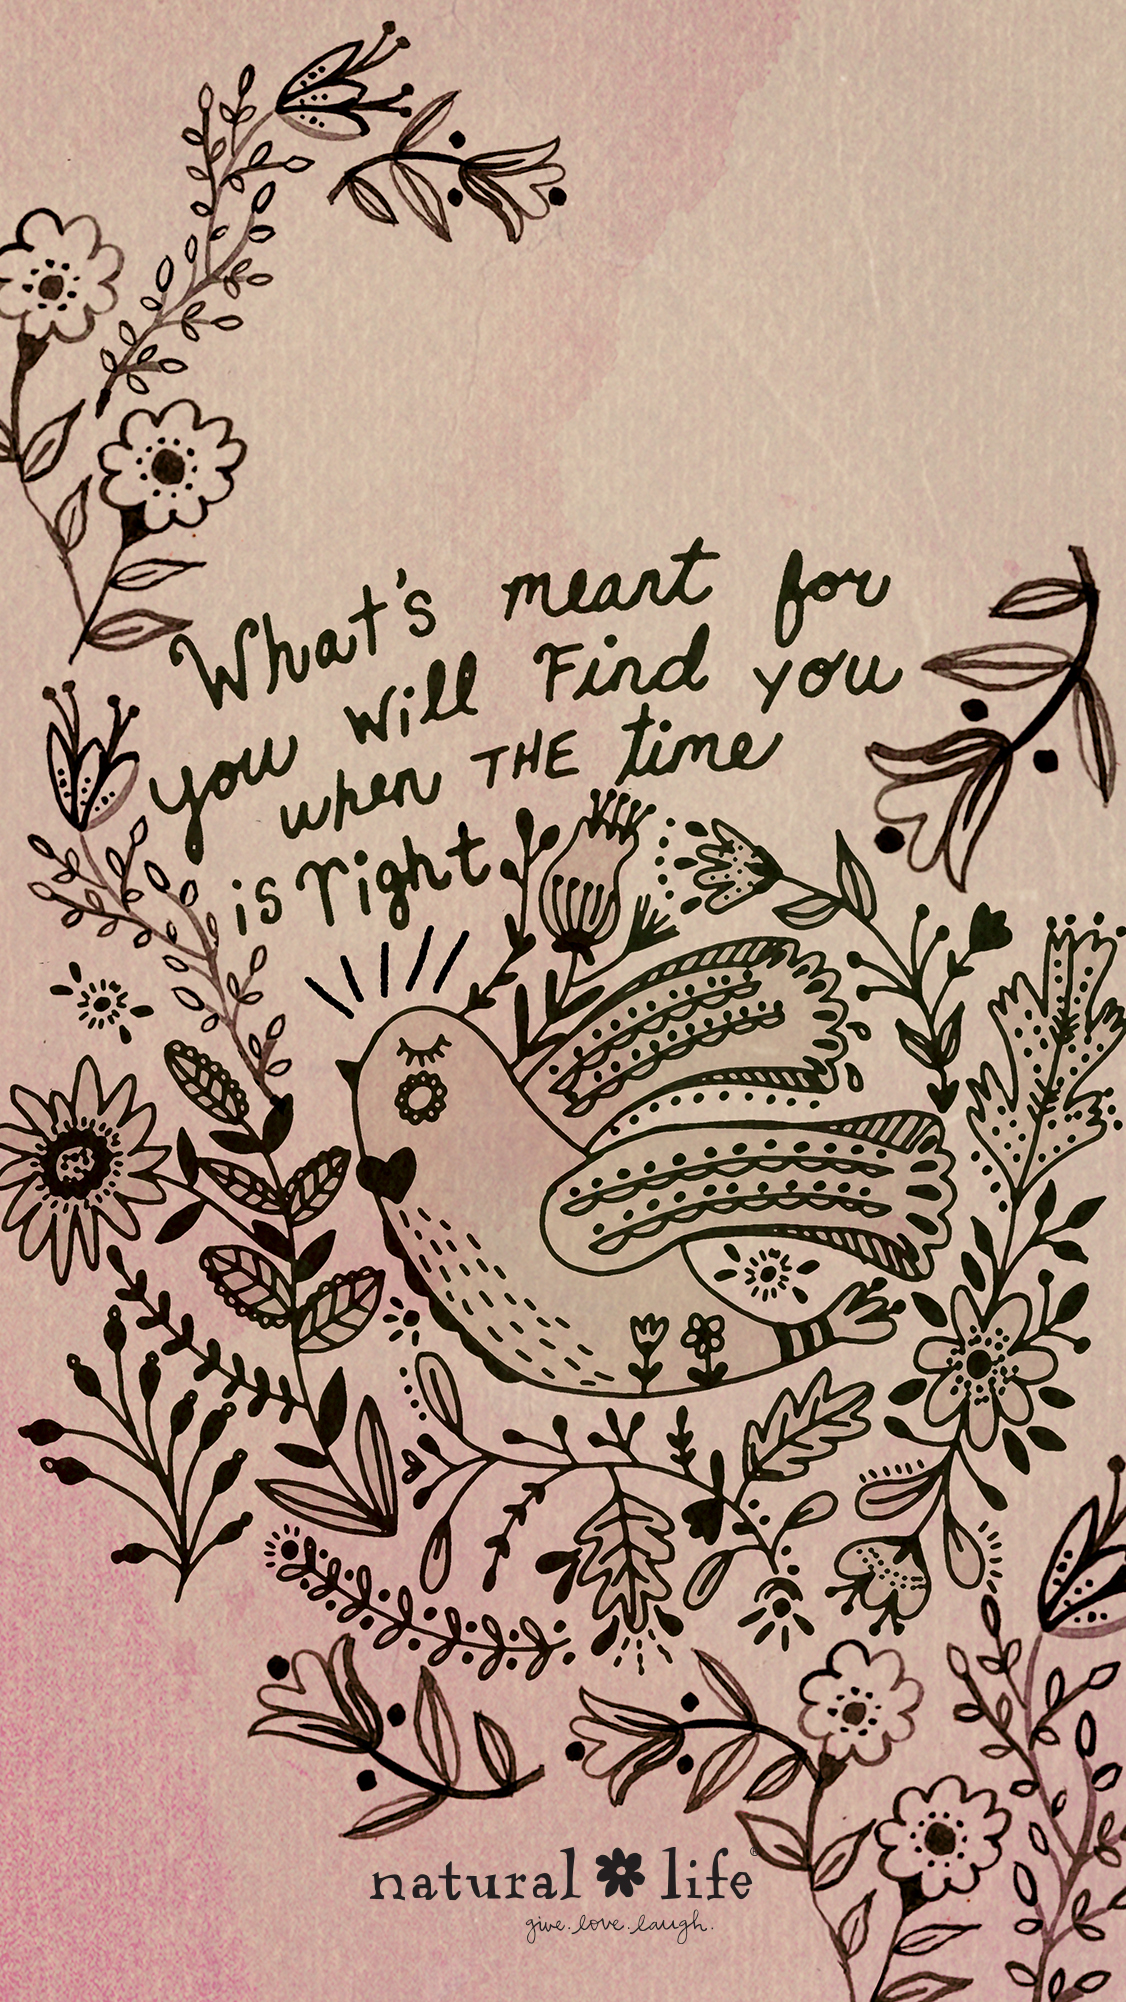 What's meant for
you will Find you
when THE time
is right
natural life®
give.love.laugh.